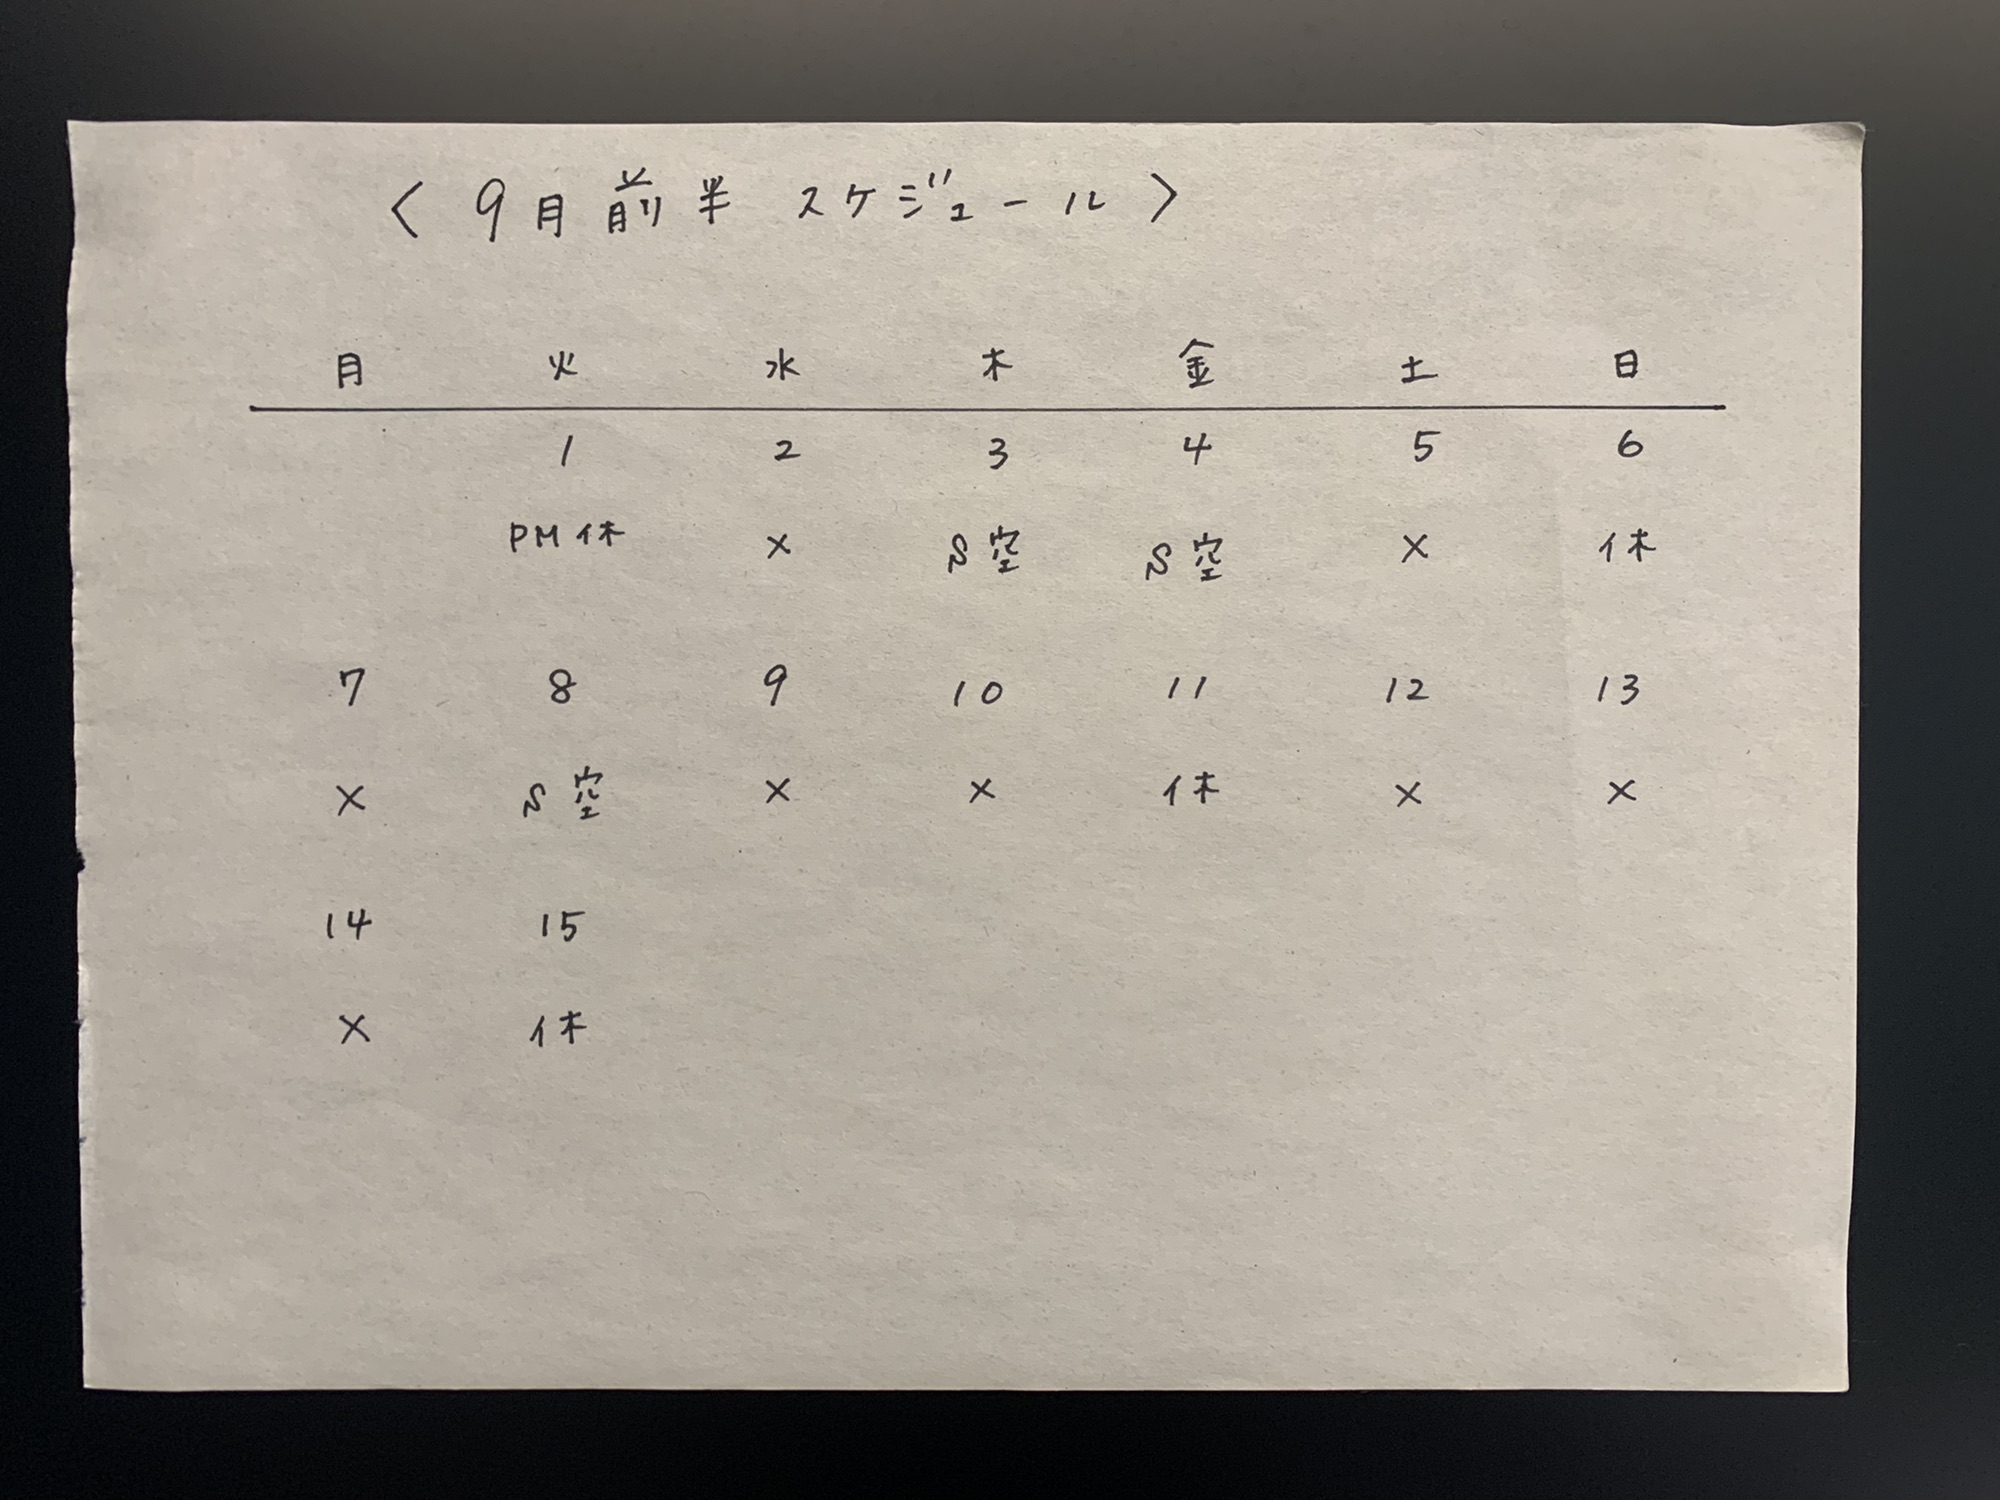 〈 9月前半 スケジュール 〉
月 火 水 木 金 土 日
1 2 3 4 5 6
PM休 × S空 S空 × 休
7 8 9 10 11 12 13
× S空 × × 休 × ×
14 15
× 休